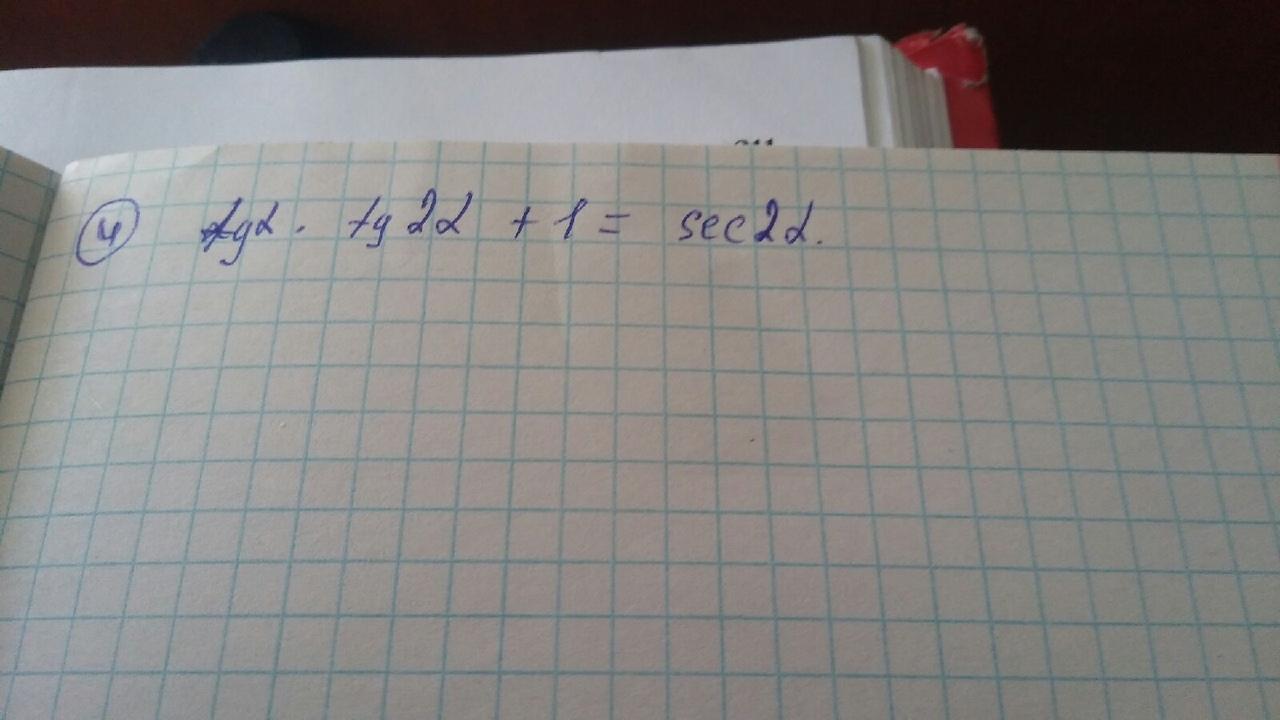 ④ tgα · tg2α + 1 = sec2α.